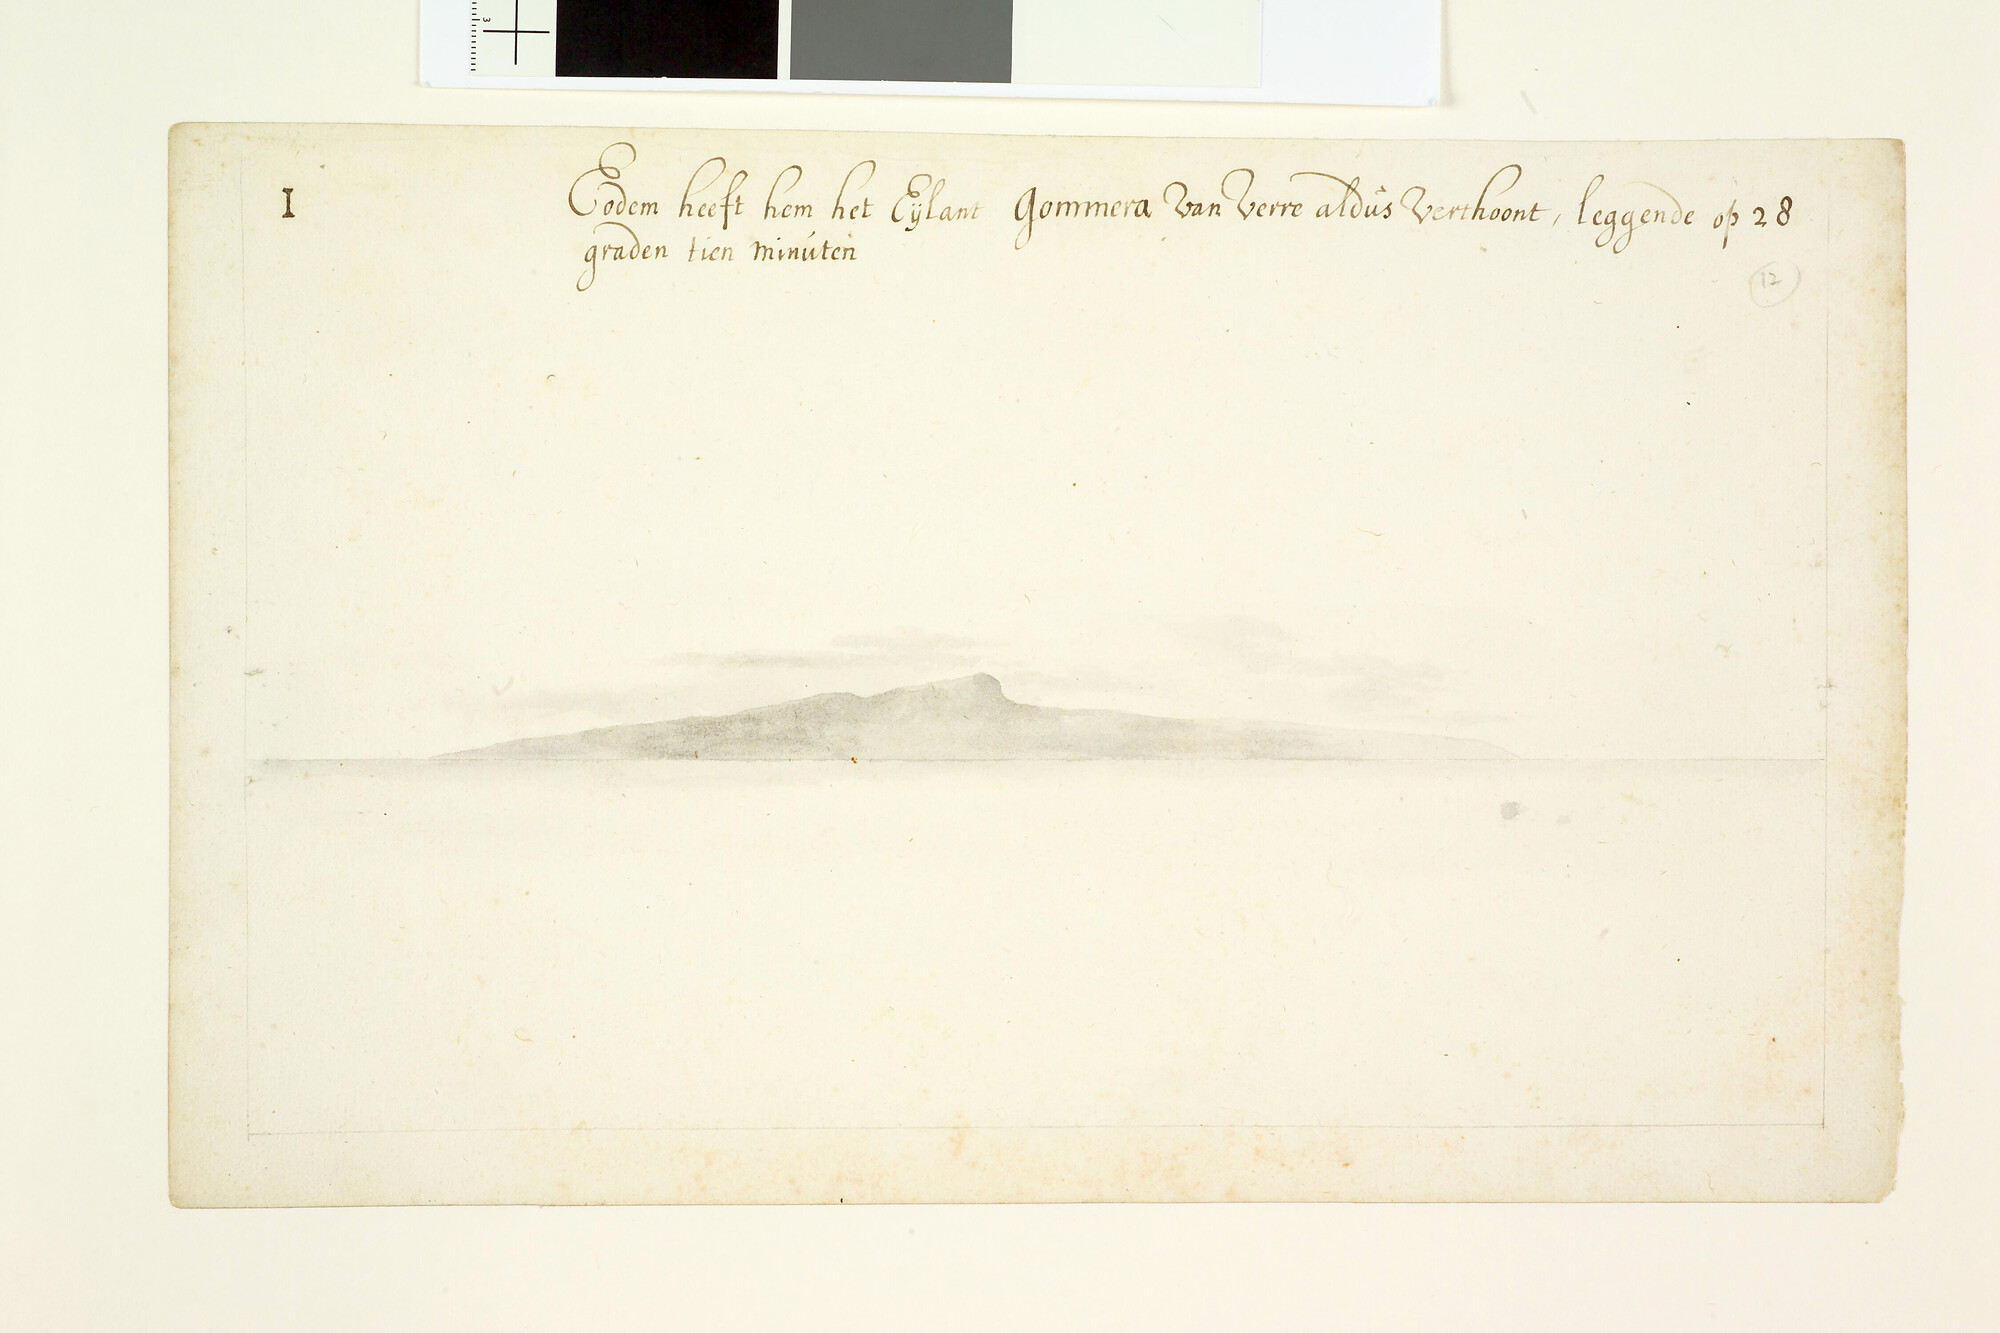 I
Eodem heeft hem het Eylant Gommera van verre aldus verthoont, leggende op 28
graden tien minuten
12
3